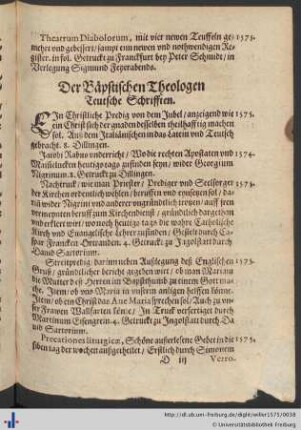 Theatrum Diabolorum, mit vier newen Teuffeln ge- 1575.
mehrt und gebessert / sampt einem newen und nothwendigen Re-
gister. in fol. Getruckt zu Franckfurt bey Peter Schmidt / in
Verlegung Sigmund Feyerabends.
Der Bäpstischen Theologen
Teutsche Schrifften.
EIn Christliche Predig von dem Jubel / anzeigend wie 1575.
ein Christ sich der gnaden desselben theilhafftig machen
sol. Auß dem Italiänischen in das Latein und Teutsch
gebracht. 8. Dillingen.
Jacobi Rabus underricht / Wo die rechten Apostaten und 1574.
zufinden seyn / wider Georgium
Nigrinum. 8. Getruckt zu Dillingen.
Nachtruck / wie man Priester / Prediger und Seelsorger 1575.
der Kirchen ordentlich wehlen / beruffen und
wider Nigrini und anderer ungründlich / auff jren
vermeynten beruff zum Kirchendienst / gründlich dargethon
und erkleret wirt / wo noch heutigs tags die wahre Catholische
Kirch und Evangelische Lehrer zufinden / Gestelt durch Ca-
spar Francken 4. Getruckt zu Ingolstatt durch Da-
vid Sartorium.
Streitpredig, darinn neben Außlegung deß Englischen 1575.
Gruß / gründtlicher bericht gegeben wirt / ob man Mariam
die Mutter deß Herrn im Bapsthumb zu einem Gott mache.
Item / ob uns Maria in unserm anligen helffen könne.
Item / ob ein Christ das Ave Maria sprechen sol / Auch zu unser
Frawen Wallfarten könne / In Truck verfertiget durch
Martinum Eisengrein. 4. Getruckt zu Ingolstatt durch Da-
vid Sartorium.
Precationes liturgicæ, Schöne außerlesene Gebet in die 1575.
siben tag der wochen außgetheilet / Erstlich durch Simonem
O iij Verro-
http://dl.ub.uni-freiburg.de/diglit/willer1575/0038
© Universitätsbibliothek Freiburg